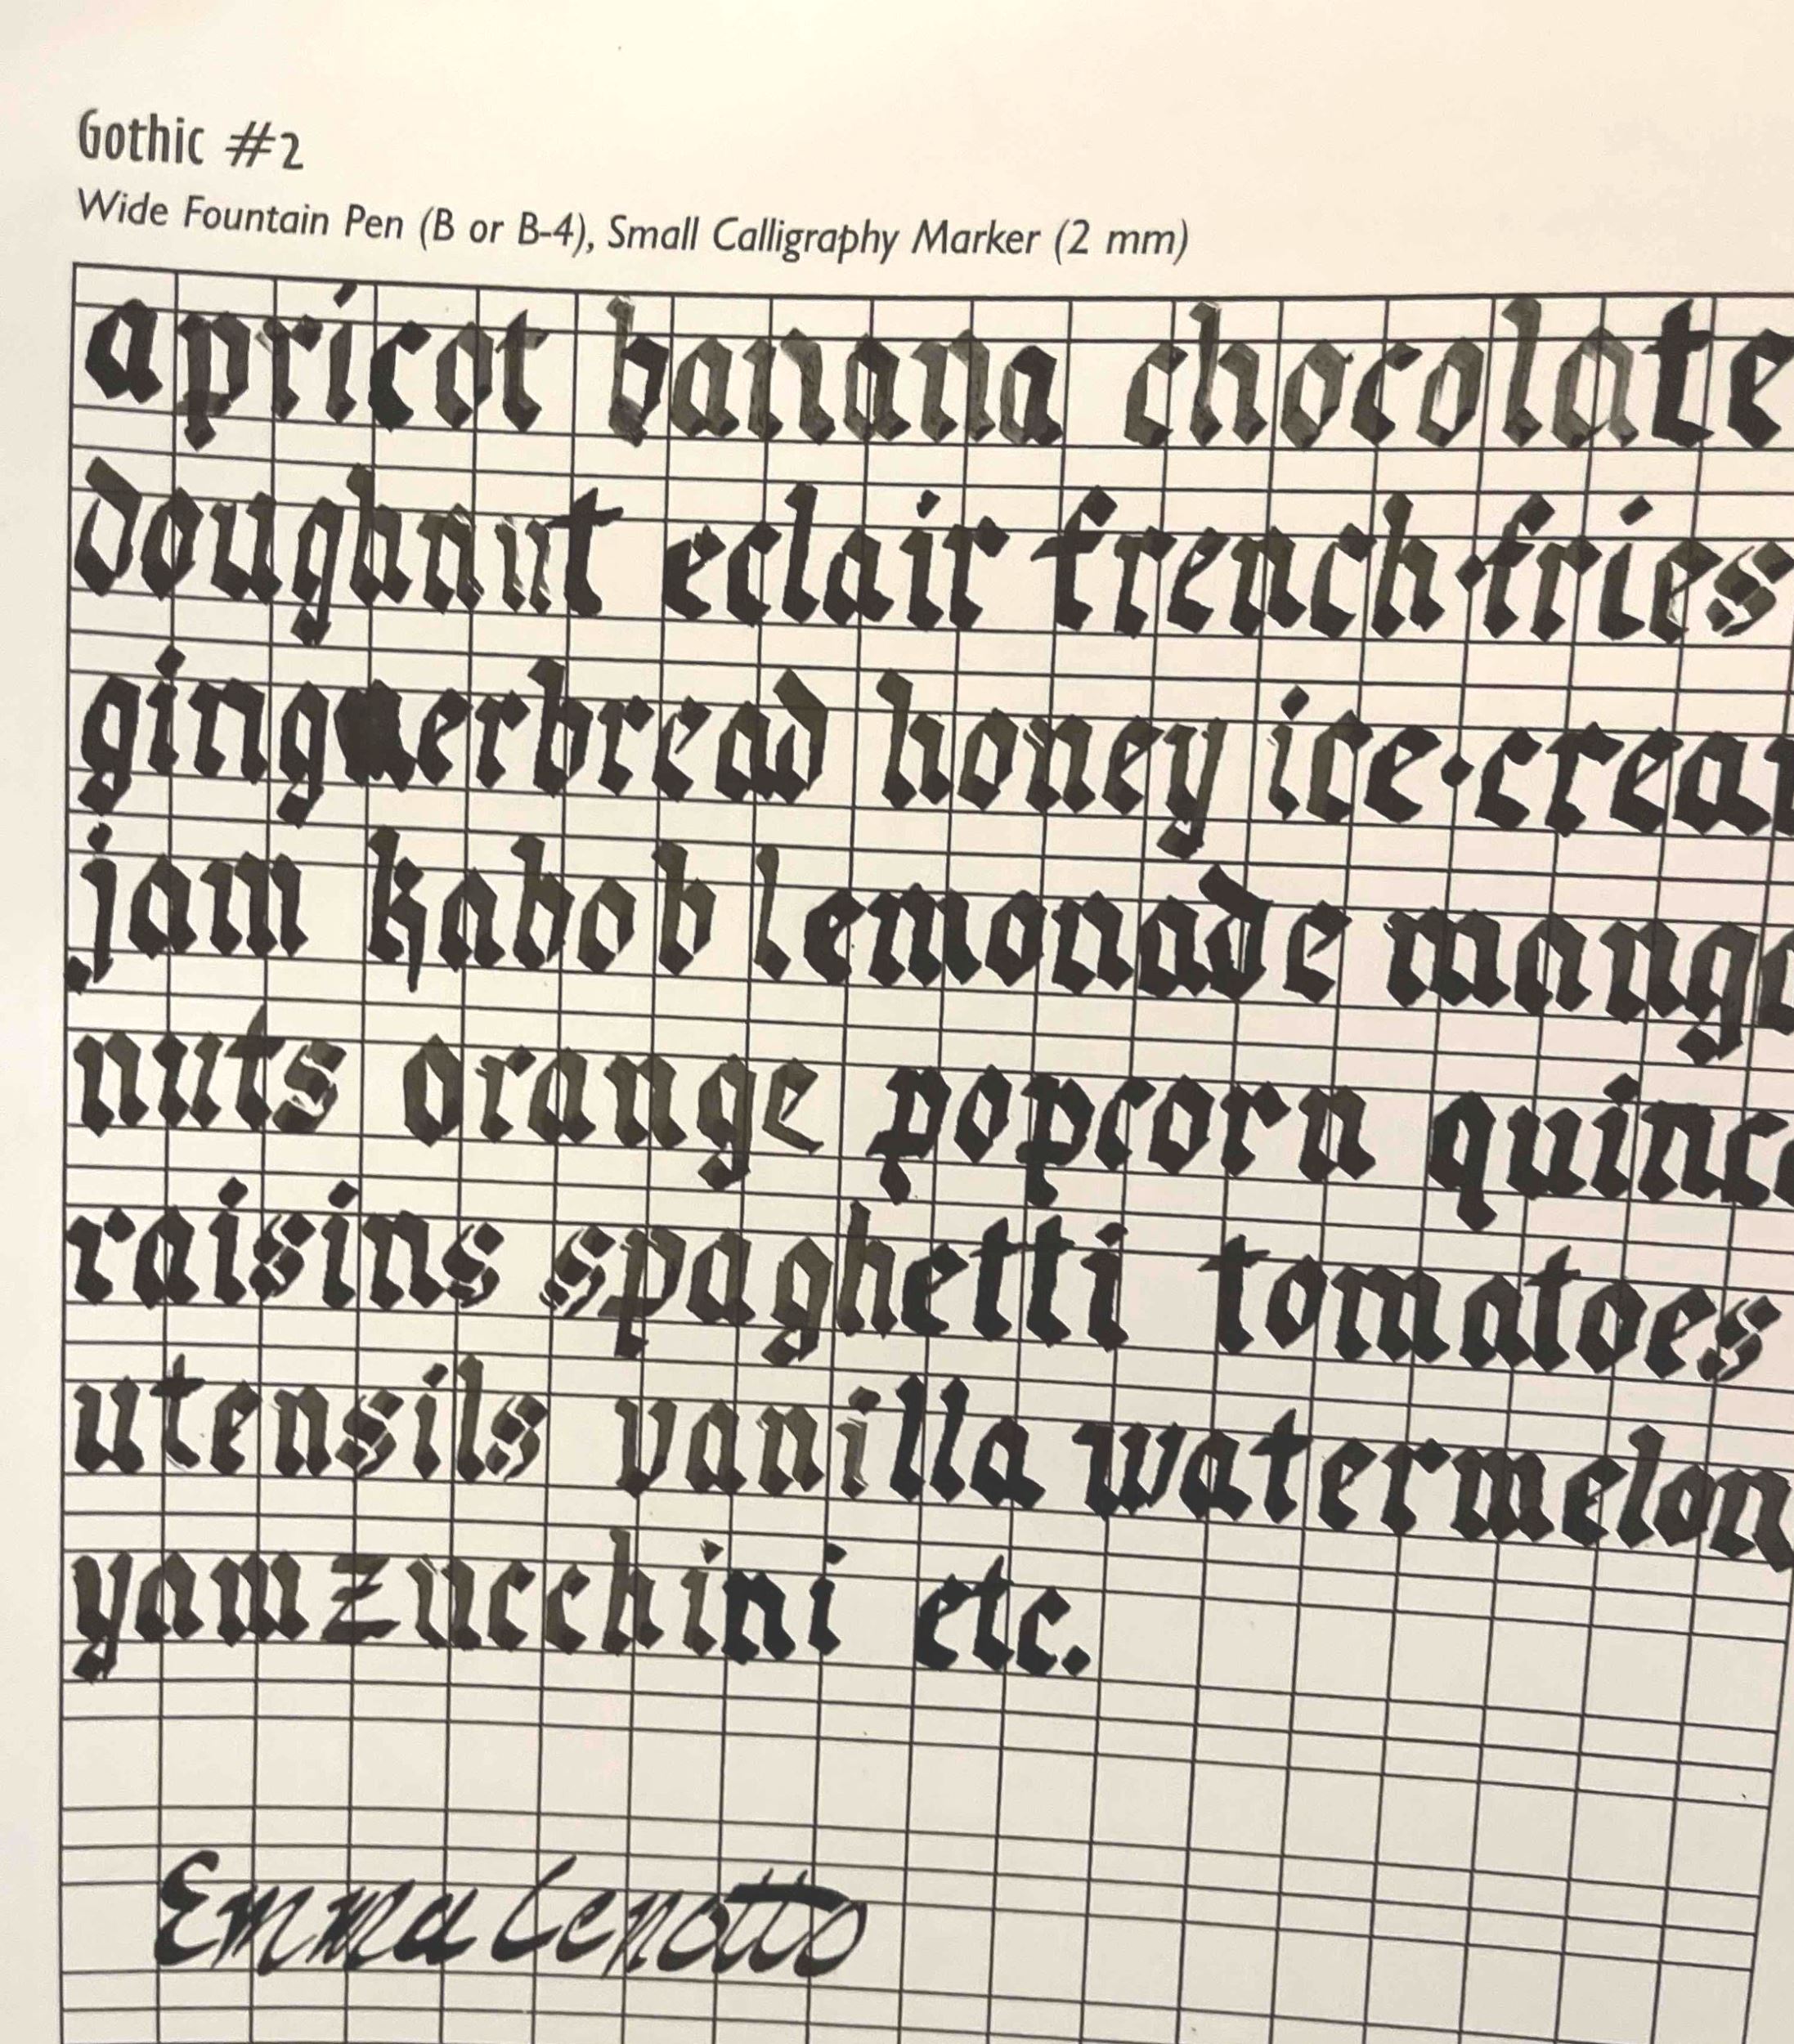 Gothic #2
Wide Fountain Pen (B or B-4), Small Calligraphy Marker (2 mm)
apricot banana chocolate
doughnut eclair french·fries
gingerbread honey ice·crea
jam kabob lemonade mango
nuts orange popcorn quince
raisins spaghetti tomatoes
utensils vanilla watermelon
yam zucchini etc.
Emma Cenotto